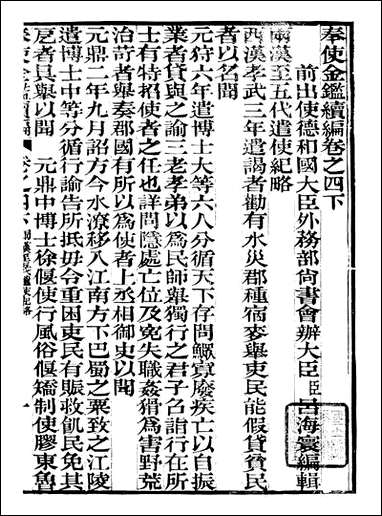 奉使金鑑續編卷之四下
前出使德和國大臣外務部尚書會辦大臣臣呂海寰編輯
兩漢至五代遣使紀略
西漢孝武三年遣謁者勸有水災郡種宿麥舉吏民能假貸貧民
者以名聞
元狩六年遣博士大等六人分循天下存問鰥寡廢疾亡以自振
業者貸與之諭三老孝弟以為民師舉獨行之君子名詣行在所
士有特招使者之任也詳問隱處亡位及冤失職姦猾為害野荒
治苛者舉奏郡國有所以為使者上丞相御史以聞
元鼎二年九月詔方今水潦移入江南方下巴蜀之粟致之江陵
遣博士中等分循行諭告所抵毋令重困吏民有賑救飢民免其
戹者具舉以聞　元鼎中博士徐偃使行風俗偃矯制使膠東魯
奉使金鑑續編　卷之四下　兩漢至五代遣使紀略　一